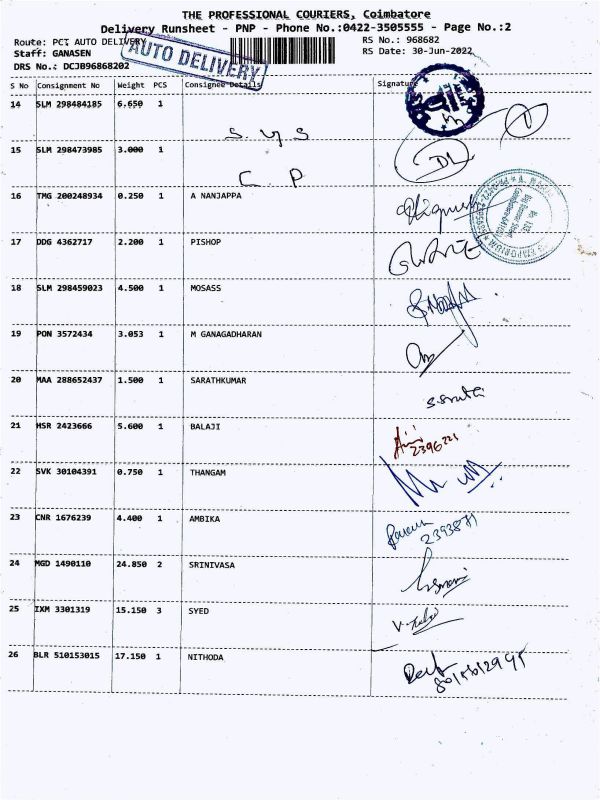 THE PROFESSIONAL COURIERS, Coimbatore
Delivery Runsheet - PNP - Phone No.:0422-3505555 - Page No.:2
Route: PCT AUTO DELIVERY
RS No.: 968682
Staff: GANASEN
RS Date: 30-Jun-2022
AUTO DELIVERY
DRS No.: DCJB96868202
S No Consignment No Weight PCS Consignee Details Signature
14 SLM 298484185 6.650 1
S y S
15 SLM 298473985 3.000 1
C P
16 TMG 200248934 0.250 1 A NANJAPPA
17 DDG 4362717 2.200 1 PISHOP
18 SLM 298459023 4.500 1 MOSASS
19 PON 3572434 3.053 1 M GANAGADHARAN
20 MAA 288652437 1.500 1 SARATHKUMAR
21 HSR 2423666 5.600 1 BALAJI
22 SVK 30104391 0.750 1 THANGAM
23 CNR 1676239 4.400 1 AMBIKA
2393871
24 MGD 1490110 24.850 2 SRINIVASA
25 IXM 3301319 15.150 3 SYED
26 BLR 510153015 17.150 1 NITHODA